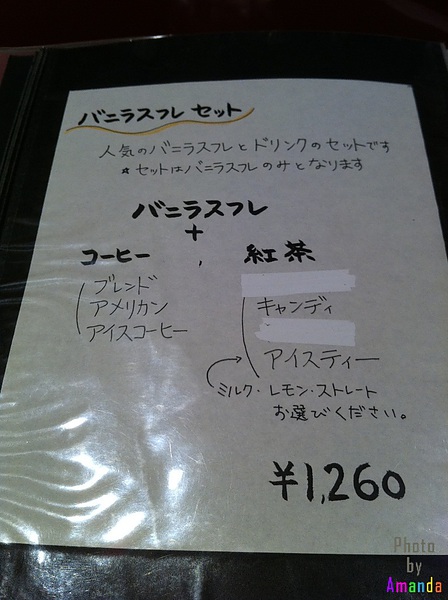 バニラスフレ セット
人気のバニラスフレとドリンクのセットです
★セットはバニラスフレのみとなります
バニラスフレ
+
コーヒー , 紅茶
ブレンド
アメリカン
アイスコーヒー
キャンディ
アイスティー
ミルク・レモン・ストレート
お選びください。
¥1,260
Photo
by
Amanda